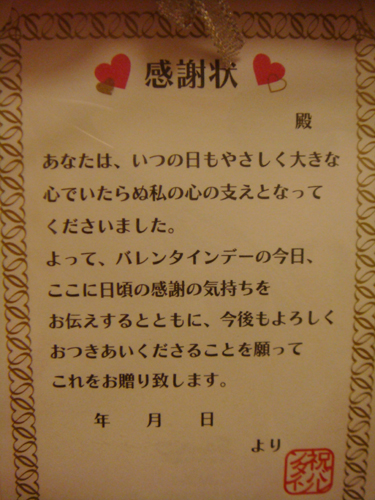 感謝状
殿
あなたは、いつの日もやさしく大きな
心でいたらぬ私の心の支えとなって
くださいました。
よって、バレンタインデーの今日、
ここに日頃の感謝の気持ちを
お伝えするとともに、今後もよろしく
おつきあいくださることを願って
これをお贈り致します。
年 月 日
より
祝バレンタイン